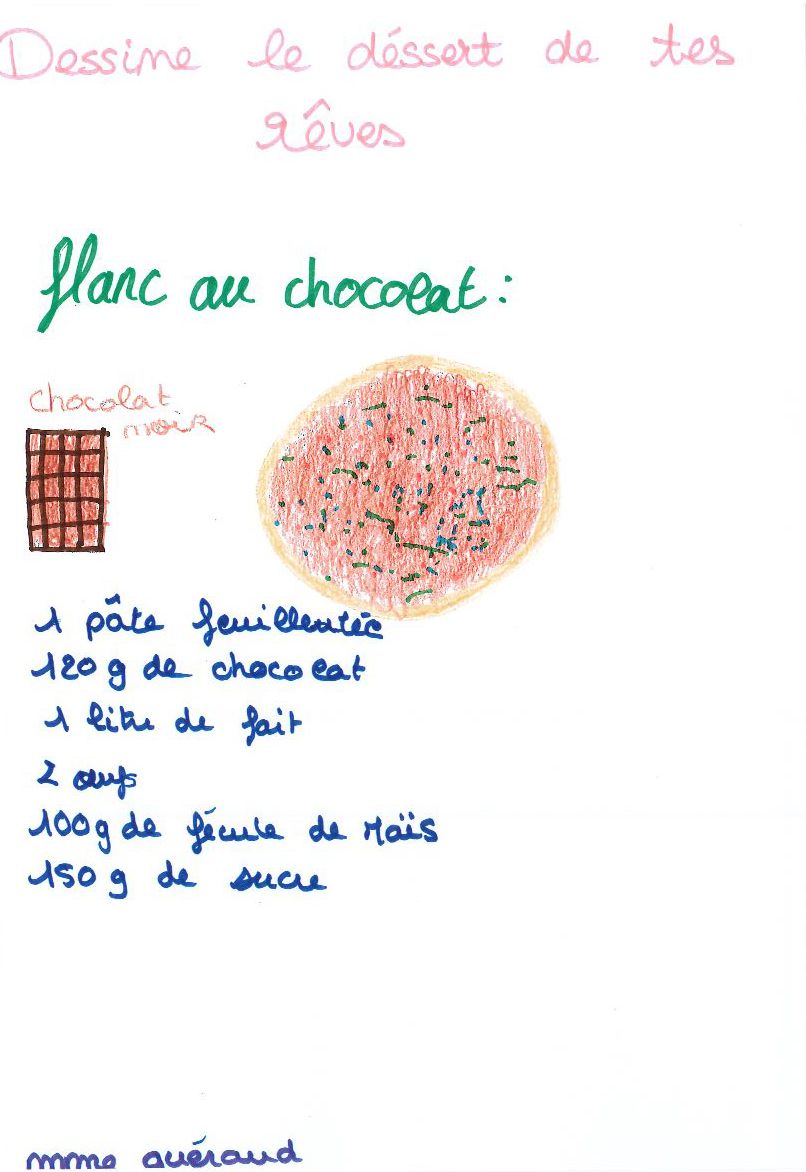 Dessine le déssert de tes
rêves
flanc au chocolat :
chocolat
noir
1 pâte feuilleutée
120 g de chocolat
1 litre de fait
2 œufs
100g de fécule de Maïs
150 g de sucre
mme auéraud